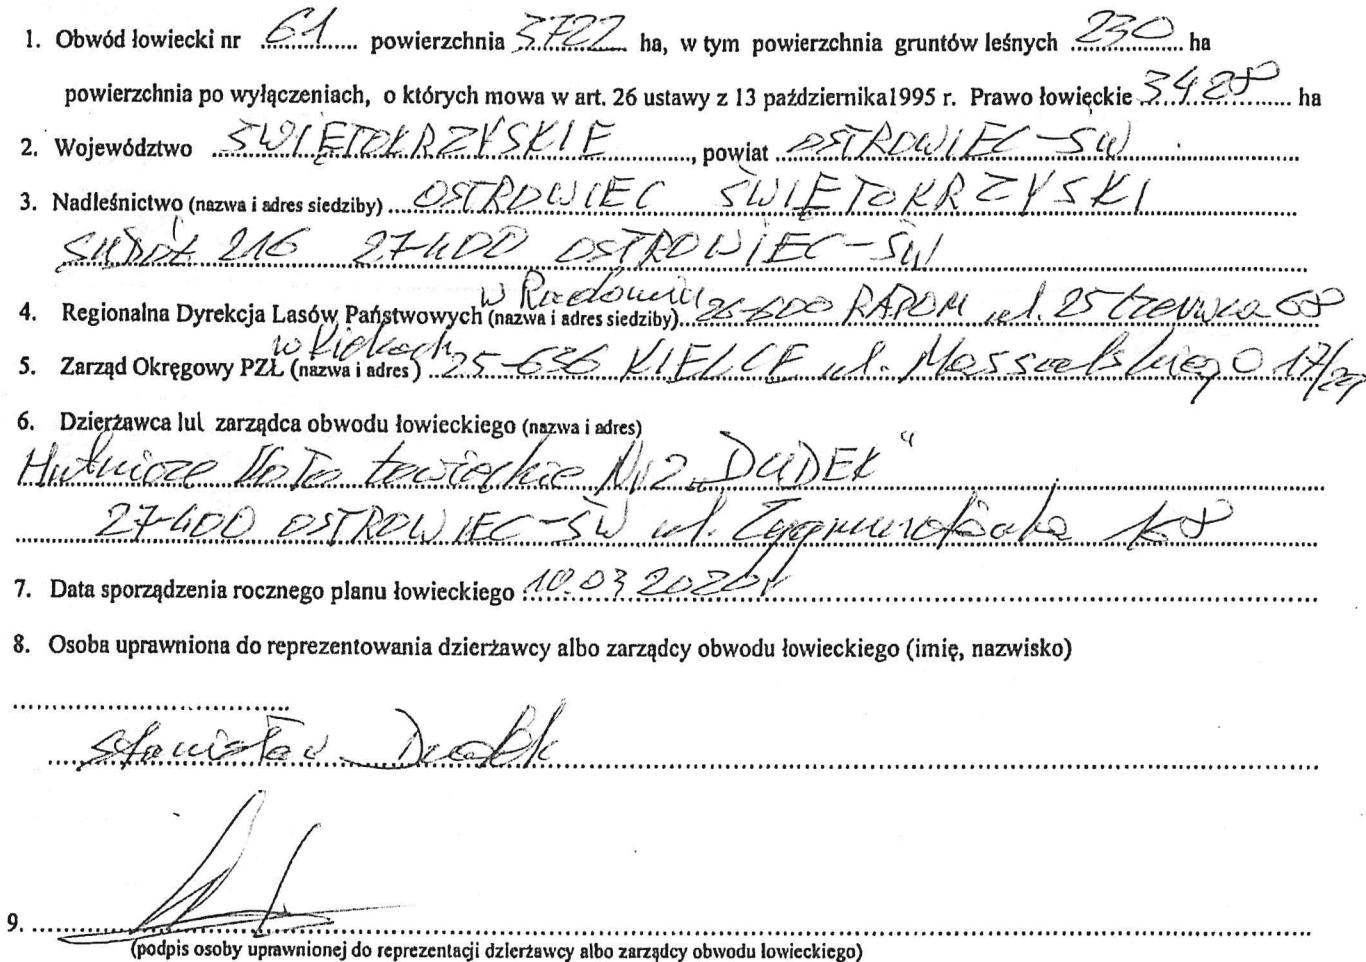 1. Obwód łowiecki nr 61 powierzchnia 3722 ha, w tym powierzchnia gruntów leśnych 230 ha
powierzchnia po wyłączeniach, o których mowa w art. 26 ustawy z 13 października1995 r. Prawo łowięckie 3428 ha
2. Województwo ŚWIĘTOKRZYSKIE, powiat OSTROWIEC-ŚW
3. Nadleśnictwo (nazwa i adres siedziby) OSTROWIEC ŚWIĘTOKRZYSKI
216 27-400 OSTROWIEC-ŚW
4. Regionalna Dyrekcja Lasów Państwowych w Radomiu (nazwa i adres siedziby) 26-600 RADOM ul. 25 Czerwca 68
5. Zarząd Okręgowy PZŁ w Kielcach (nazwa i adres) 25-636 KIELCE ul. Massalskiego 17/29
6. Dzierżawca lub zarządca obwodu łowieckiego (nazwa i adres)
Hutnicze Koło Łowieckie Nr 2 „DUDEK"
27-400 OSTROWIEC-ŚW ul. Zygmuntówka
7. Data sporządzenia rocznego planu łowieckiego 10.03 2020r
8. Osoba uprawniona do reprezentowania dzierżawcy albo zarządcy obwodu łowieckiego (imię, nazwisko)
Stanisław
9.
(podpis osoby uprawnionej do reprezentacji dzierżawcy albo zarządcy obwodu łowieckiego)